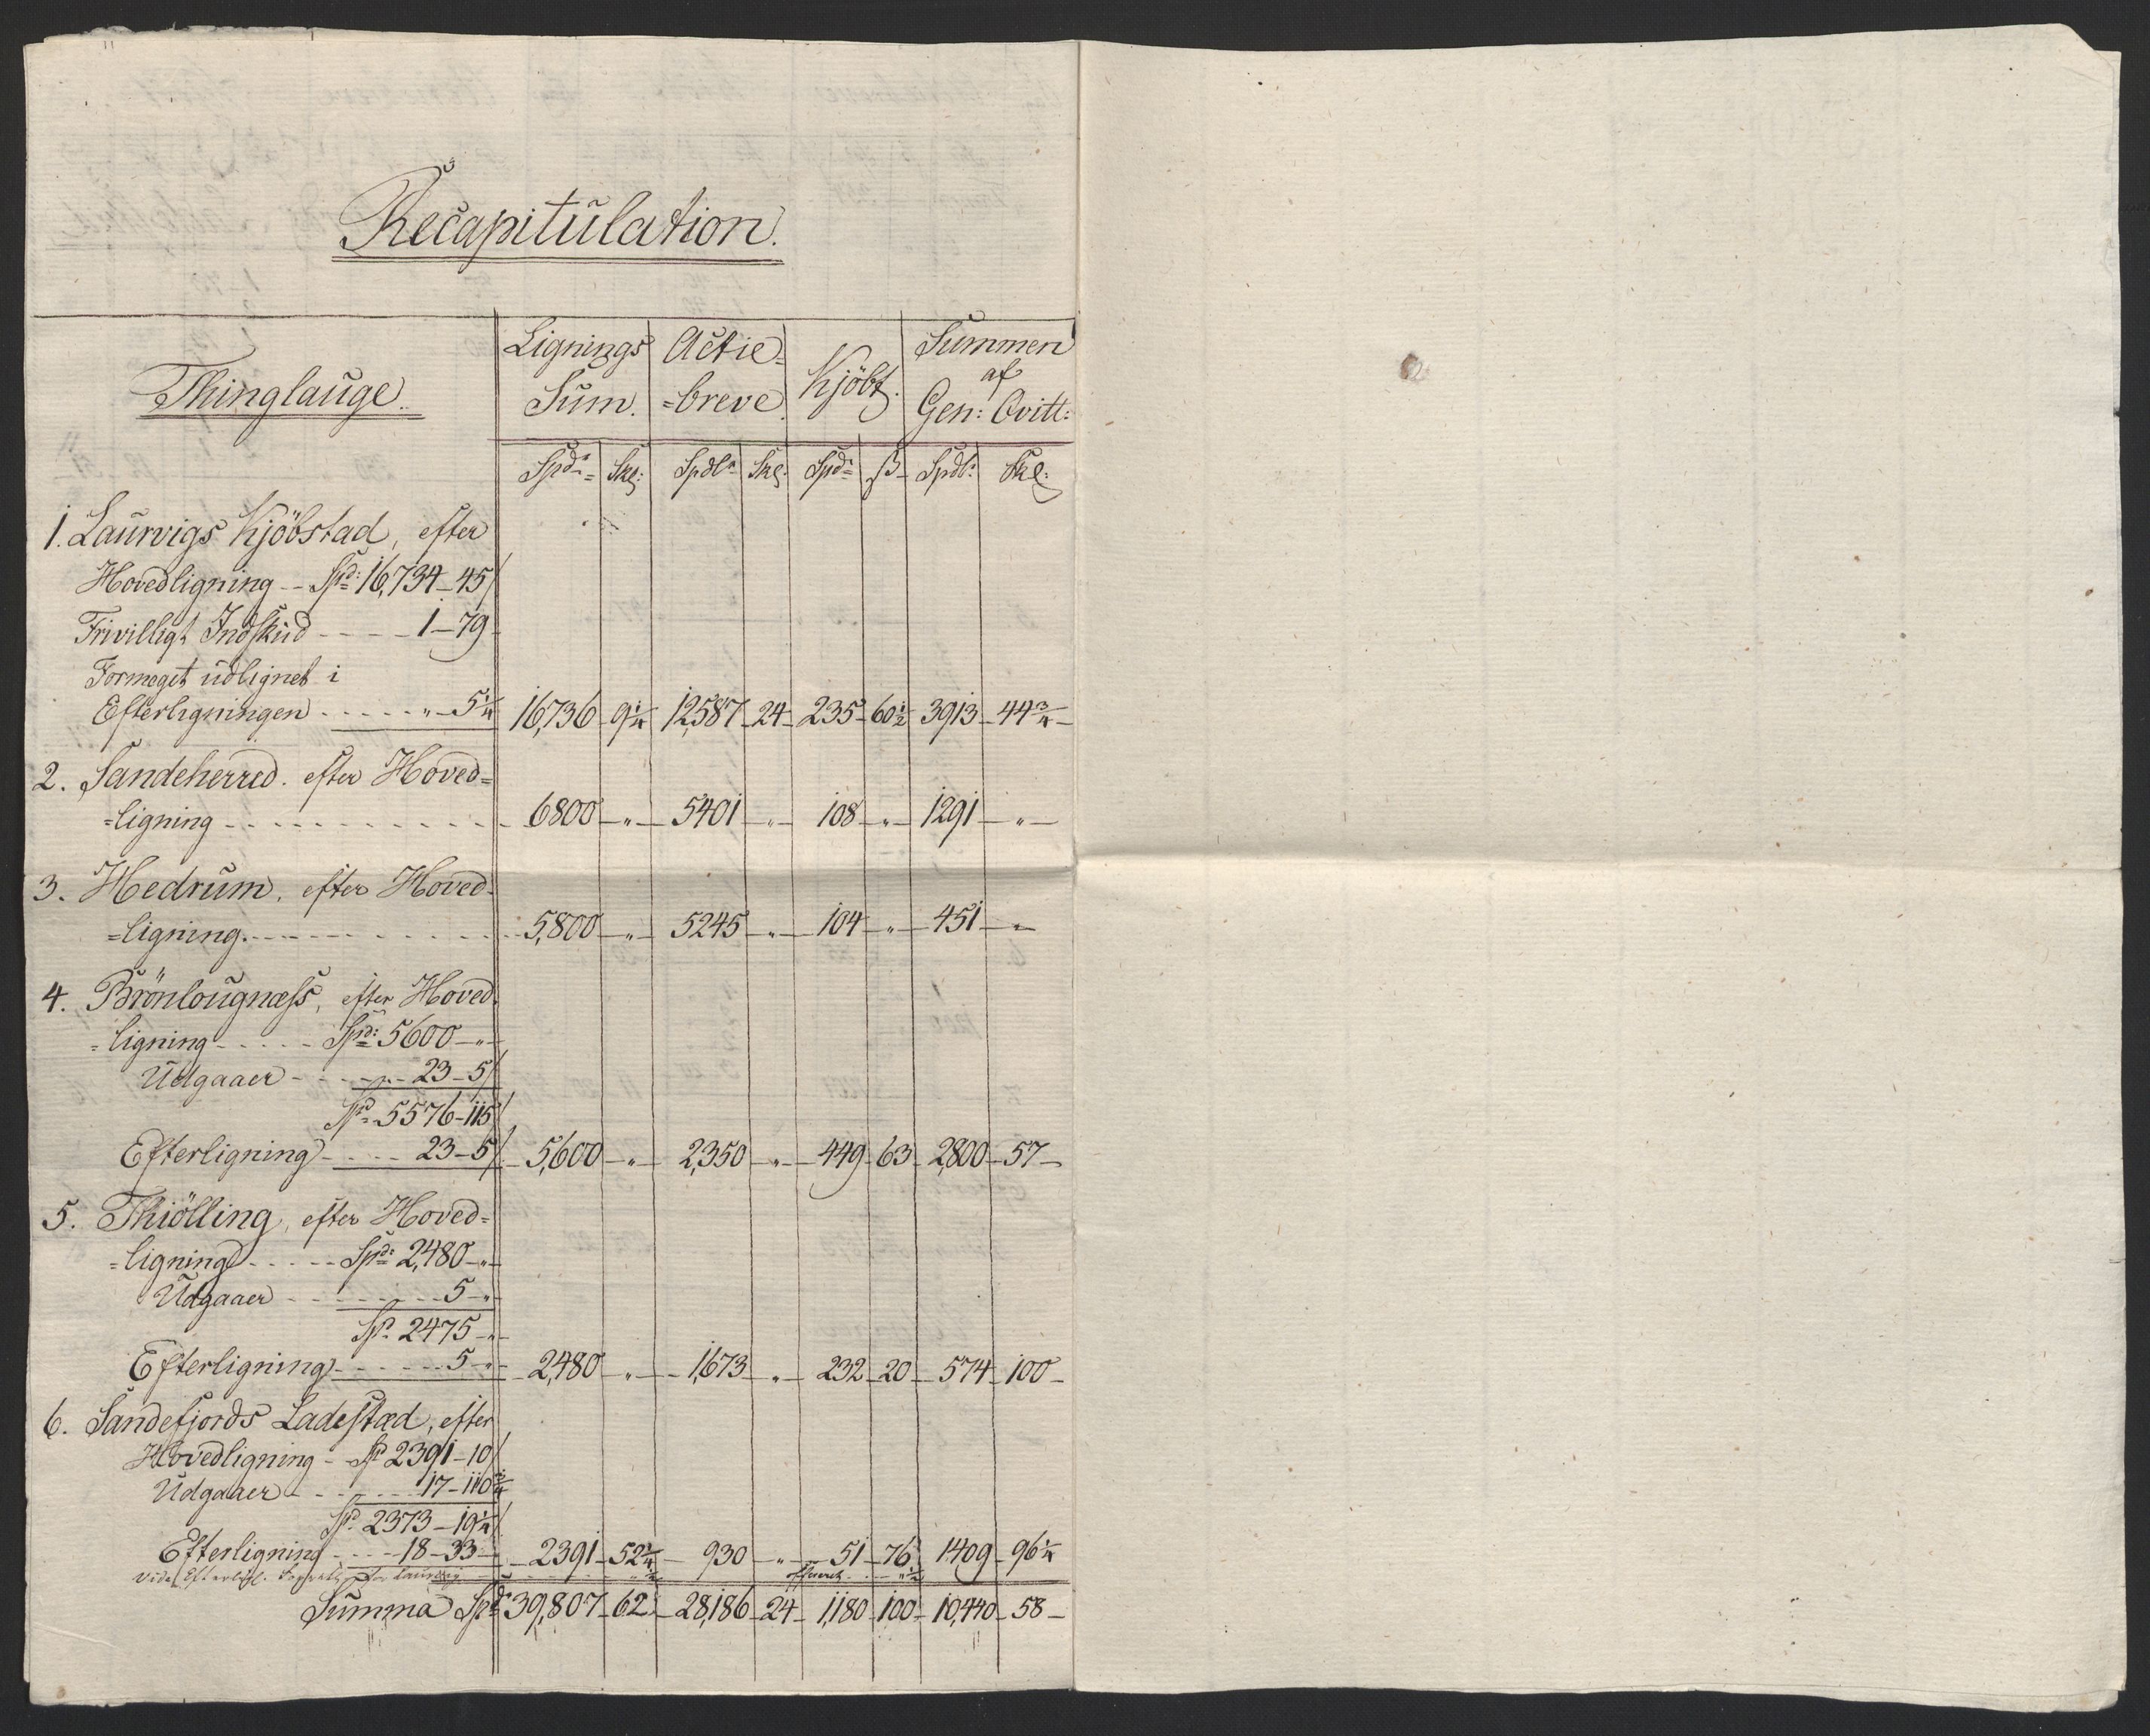 Recapitulation.
Thinglauge. Lignings Sum. Actie= =breve Kjöbt. Summen af Gen: Qvitt:
Spd: Skl: Spdlr Skl: Spd: ß Spdlr: Skl:
1. Laurvigs Kjöbstad, efter
Hovedligning -- Spd: 16,734-45/
Frivilligt Indskud - - - - 1-79
Formeget udlignet i
Efterligningen . . . . . „ 5 1/4 16,736 - 9 1/4 12,587 - 24 - 235 - 60 1/2 3913 - 44 3/4 -
2. Sandeherred. efter Hoved=
=ligning - - - - 6800 - „ - 5401 - „ - 108 - „ - 1291 - „ -
3. Hedrum, efter Hoved=
=ligning. - - - - 5,800 - „ - 5245 - „ - 104 - „ - 451 - „
4. Brönlougnæss, efter Hoved
=ligning - - - - Spd: 5600 - „ -
Udgaaer - - - - 23-5/
Spd 5576-115/
Efterligning - - - - 23-5/ 5,600 - „ - 2,350 - „ - 449 - 63 - 2,800 - 57 -
5. Thiölling, efter Hoved=
=ligning - - - - Spd: 2,480 - „ -
Udgaaer - - - - 5 - „
Sp. 2475 - „ -
Efterligning - - - - 5 - „ - 2,480 - „ - 1,673 - „ - 232 - 20 - 574 - 100 -
6. Sandefjords Ladestæd, efter
Hovedligning - Sp 2391-10/
Udgaaer - - - - 17-110 3/4
Sp. 2373-19 1/4/
Efterligning - - - - 18-33 - 2391 - 52 1/4 - 930 - „ - 51 - 76 1409 - 96 1/4
vide Efterligt. for Laurvig - - - - „ 1/2
Summa Spd 39,807 - 62 - 28,186 - 24 - 1,180 - 100 - 10,440 - 58 -